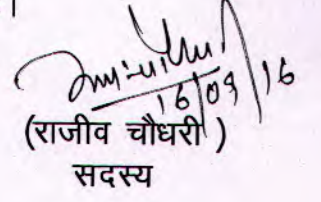 16/09/16
(राजीव चौधरी)
सदस्य